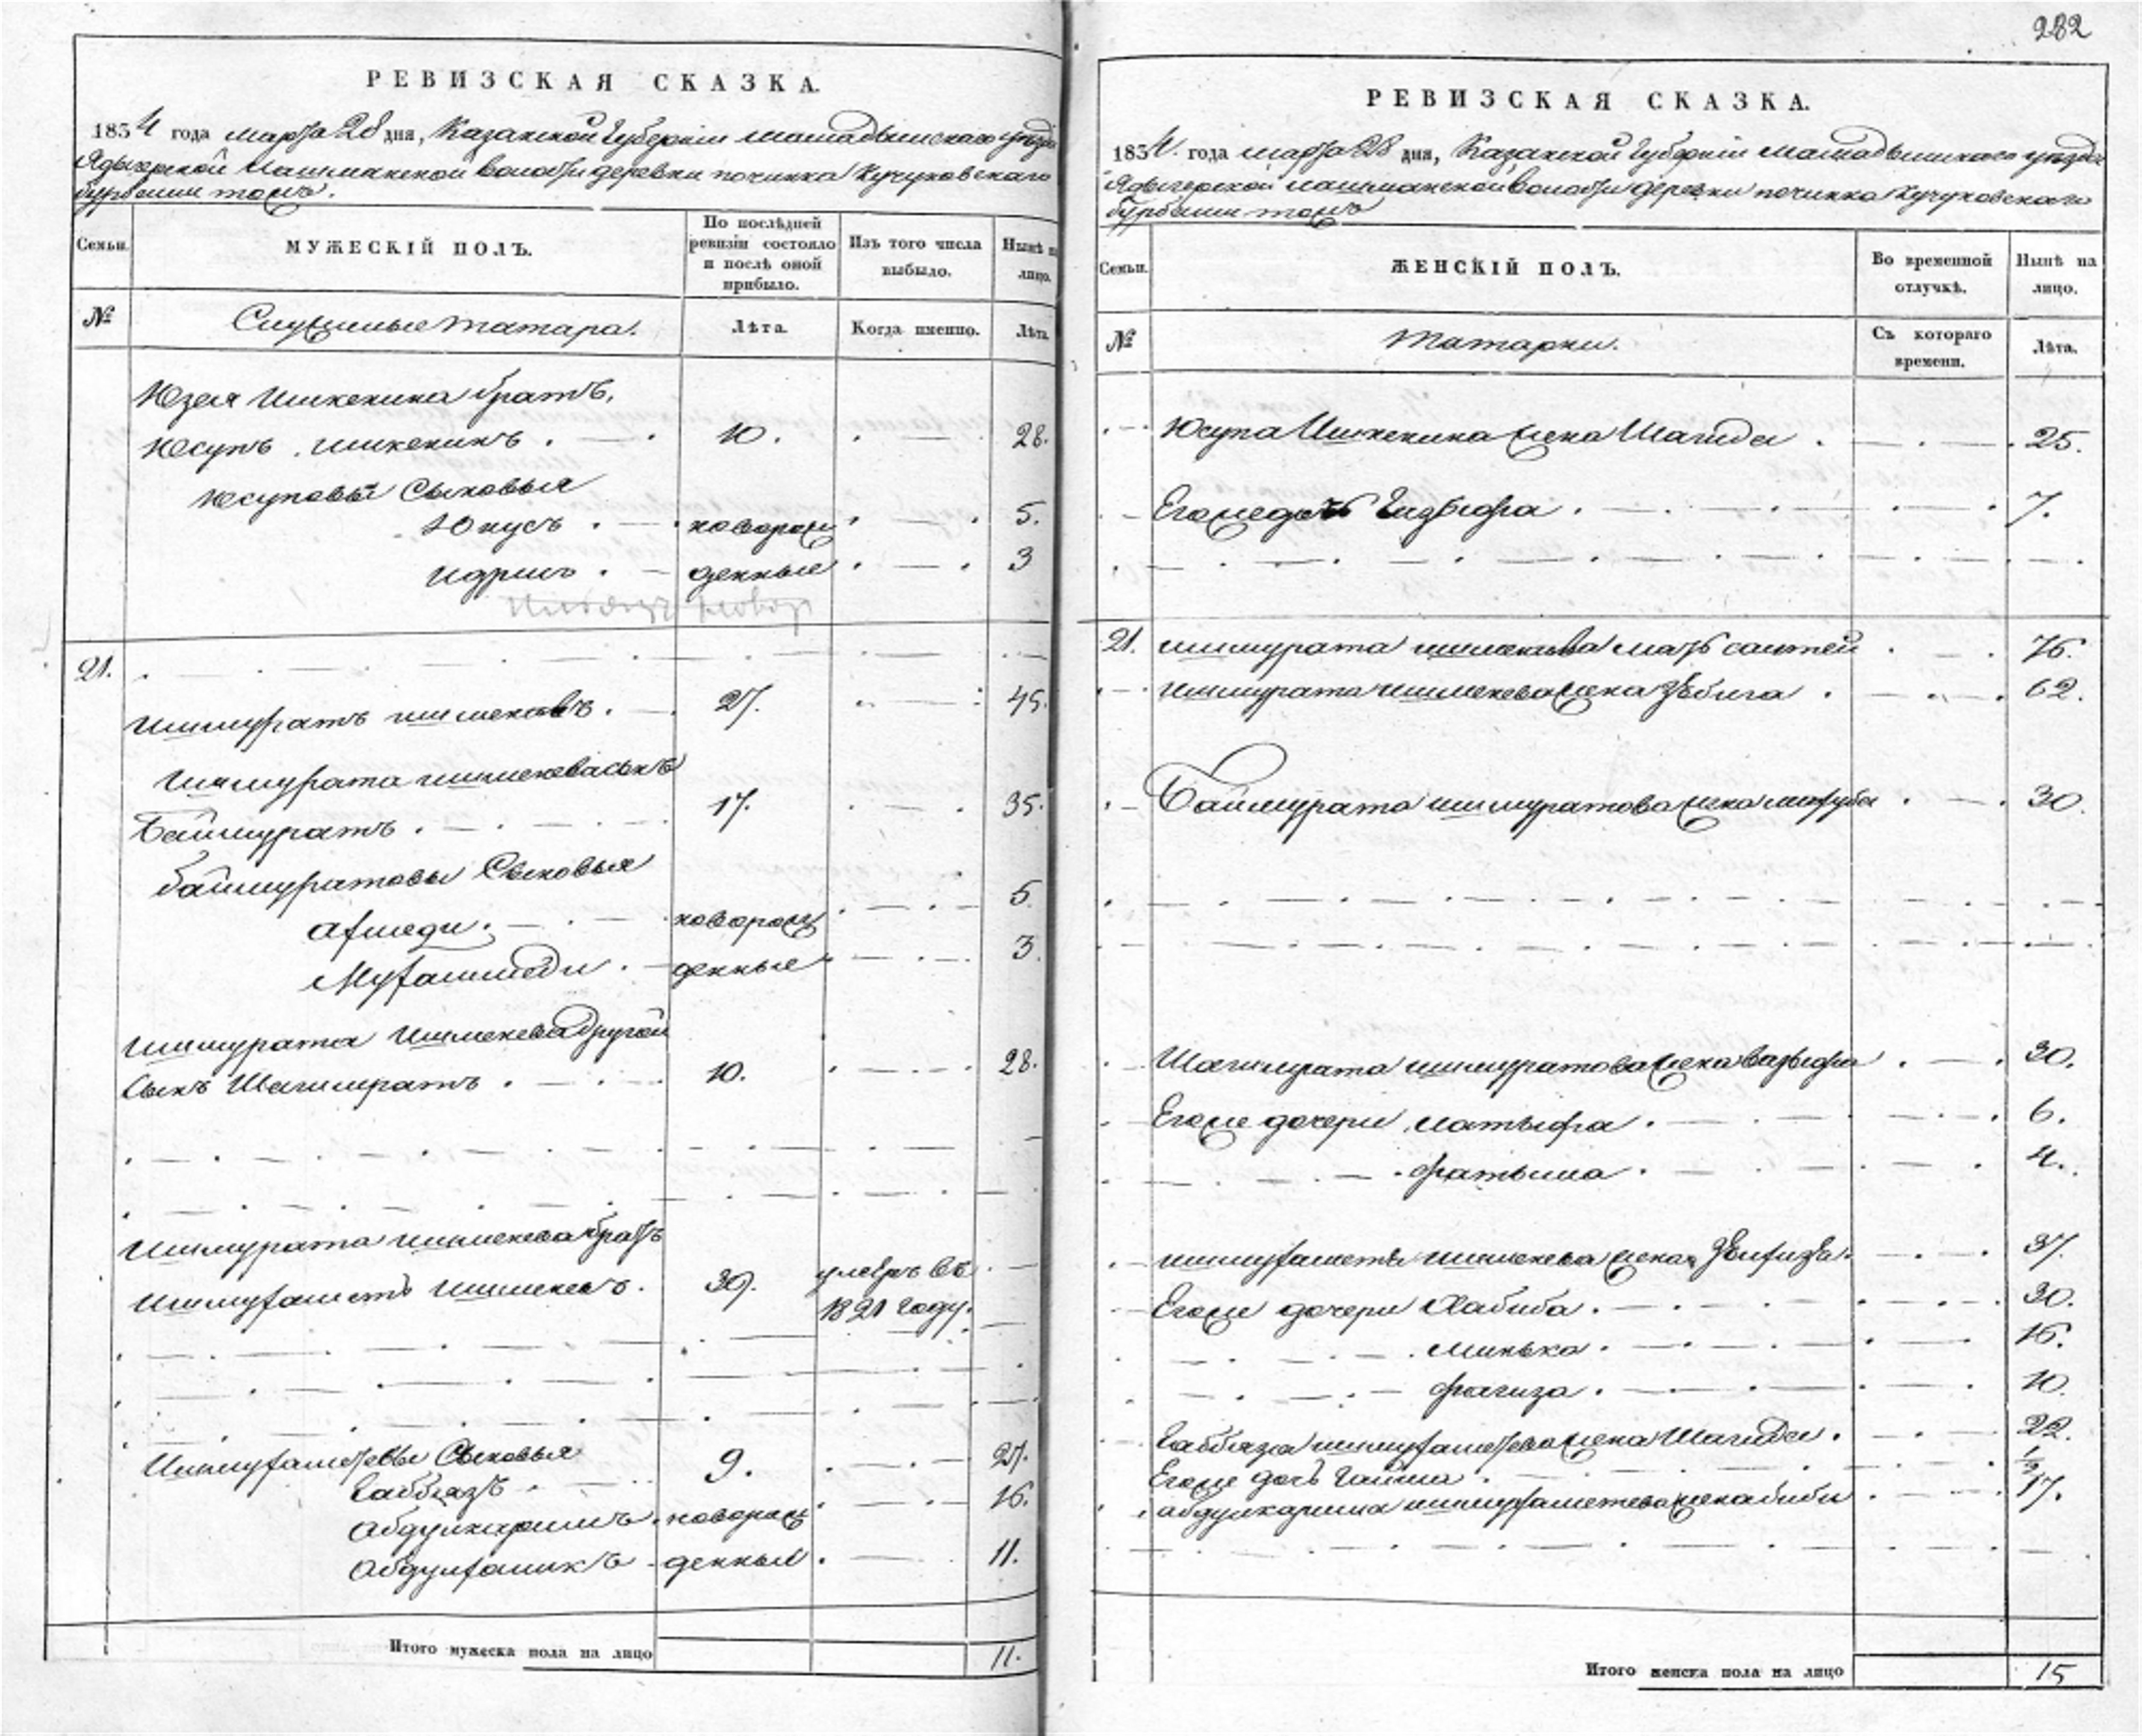 282
РЕВИЗСКАЯ СКАЗКА.
1834 года марта 28 дня, Казанской Губерніи Мамадышскаго уѣзда
Ядыгерской Лашманской волости деревни починка Кучуковскаго
Семьи.
МУЖЕСКІЙ ПОЛЪ.
По послѣдней ревизіи состояло и послѣ оной прибыло.
Изъ того числа выбыло.
Нынѣ на лицо.
№
Служилые татара.
Лѣта.
Когда именно.
Лѣта.
Юзея Ишкенина братъ,
Юсупъ Ишкенинъ . — . 10. . — . 28.
Юсуповы Сыновья
Юнусъ . — . новорож . — . 5.
Идрисъ . — денные . — . 3
21.
Ишмуратъ Ишмекевъ . — . 27. . — . 45.
Ишмурата Ишмекева сынъ
Баймуратъ . — . 17. . — . 35.
Баймуратовы Сыновья
Ахмеди . — . новорож . — . 5.
Мухаммеди . — денные . — . 3.
Ишмурата Ишмекева другой
Сынъ Шагимратъ . — . 10. . — . 28.
Ишмурата Ишмекева братъ
Ишмухаметъ Ишмекевъ . 39. умеръ въ . —
1821 году.
Ишмухаметевы Сыновья
Габбязъ . — 9. . — . 27.
Абдулкаримъ . новорож . — . 16.
Абдулхаликъ . денные . — 11.
Итого мужеска пола на лицо 11.
РЕВИЗСКАЯ СКАЗКА.
1834. года марта 28 дня, Казанской Губерніи Мамадышскаго уѣзда
Ядыгерской Лашманской волости деревни починка Кучуковскаго
Семьи.
ЖЕНСКІЙ ПОЛЪ.
Во временной отлучкѣ.
Нынѣ на лицо.
№
Татарки.
Съ котораго времени.
Лѣта.
Юсупа Ишкенина жена Шагида . — . 25.
Его же дочь Гизыфа . — . 7.
21. Ишмурата Ишмекева мать . — . 76.
Ишмурата Ишмекева жена Зюбига . — . 62.
Баймурата Ишмуратова жена . — . 30.
Шагимрата Ишмуратова жена Вазыфа . — . 30.
Его же дочери Латыфа . — . 6.
Фатыма . — . 4.
Ишмухаметя Ишмекева жена . — . 37.
Его же дочери Хабиба . — . 30.
Минька . — . 16.
Фагиза . — . 10.
Габбяза Ишмухаметева жена Шагида . — . 22.
Его же дочь Гайша . — . 1/2
Абдулкарима Ишмухаметева жена Биби . — . 17.
Итого женска пола на лицо 15